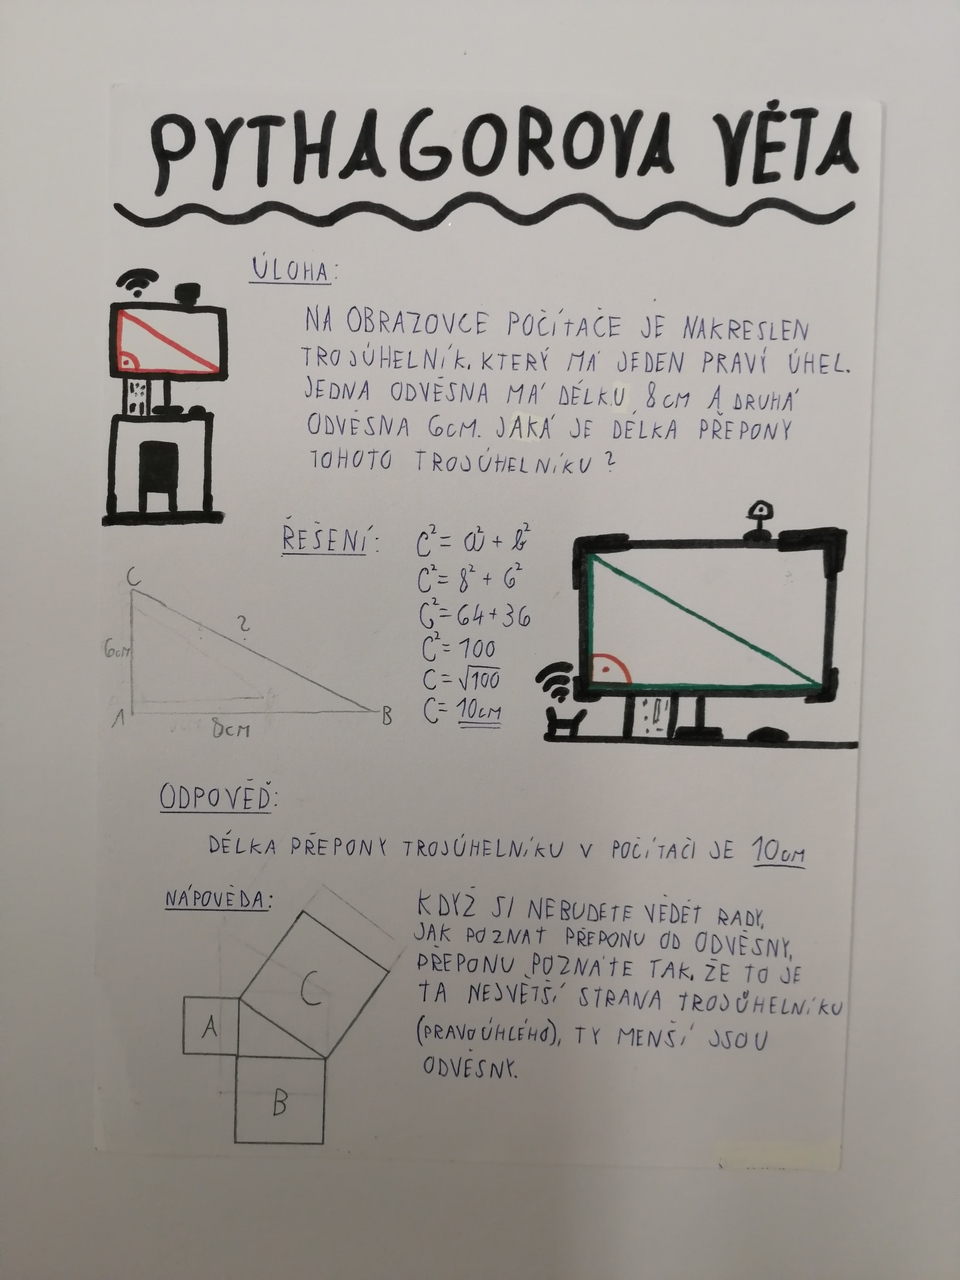 PYTHAGOROVA VĚTA
ÚLOHA:
NA OBRAZOVCE POČÍTAČE JE NAKRESLEN
TROJÚHELNÍK, KTERÝ MÁ JEDEN PRAVÍ ÚHEL.
JEDNA ODVĚSNA MÁ DÉLKU 8CM A DRUHÁ
ODVĚSNA 6CM. JAKÁ JE DÉLKA PŘEPONY
TOHOTO TROJÚHELNÍKU?
ŘEŠENÍ:
C² = a² + b²
C² = 8² + 6²
C² = 64 + 36
C² = 100
C = √100
C = 10CM
C
6CM
?
A
8CM
B
ODPOVĚĎ:
DÉLKA PŘEPONY TROJÚHELNÍKU V POČÍTAČI JE 10CM
NÁPOVĚDA:
KDYŽ SI NEBUDETE VĚDĚT RADY,
JAK POZNAT PŘEPONU OD ODVĚSNY,
PŘEPONU POZNÁTE TAK, ŽE TO JE
TA NEJVĚTŠÍ STRANA TROJŮHELNÍKU
(PRAVOÚHLÉHO), TY MENŠÍ JSOU
ODVĚSNY.
C
A
B